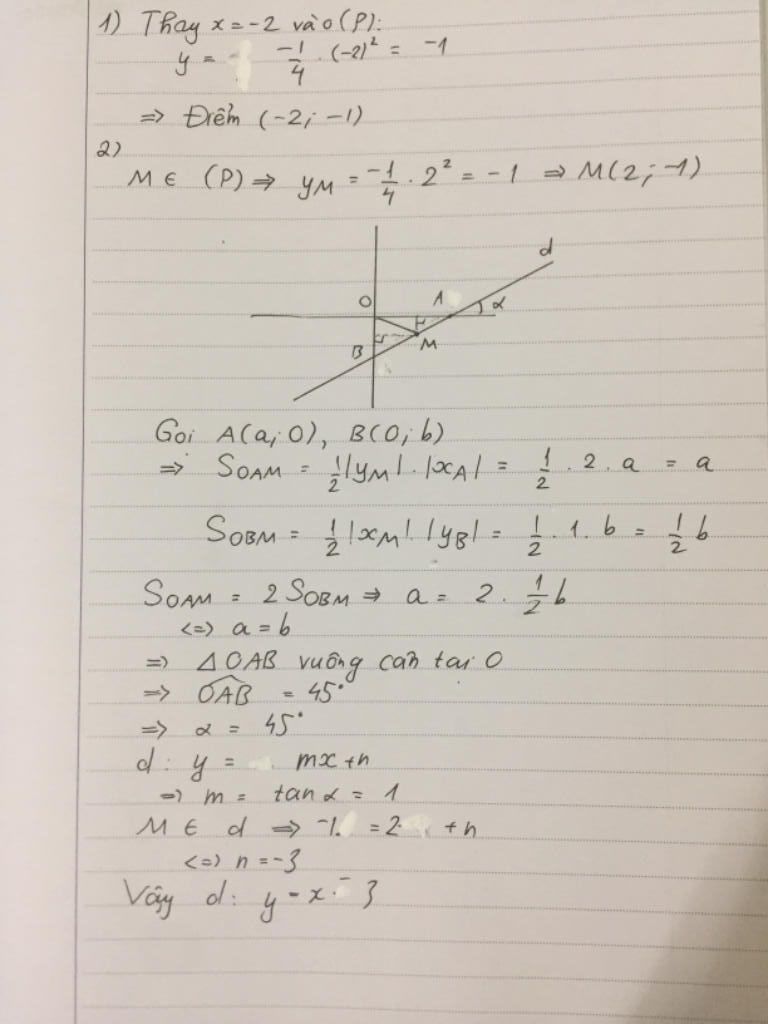 1) Thay x = -2 vào (P):
y = -1/4 . (-2)² = -1
=> Điểm (-2; -1)
2)
M ∈ (P) => yM = -1/4 . 2² = -1 => M(2; -1)
d
O A α
B M
Goi A(a; 0), B(0; b)
=> SOAM = 1/2 |yM| . |xA| = 1/2 . 2 . a = a
SOBM = 1/2 |xM| . |yB| = 1/2 . 1 . b = 1/2 b
SOAM = 2 SOBM => a = 2 . 1/2 b
<=> a = b
=> ΔOAB vuông cân tai O
=> OAB = 45°
=> α = 45°
d: y = mx + n
=> m = tan α = 1
M ∈ d => -1 = 2 + n
<=> n = -3
Vậy d: y = x - 3